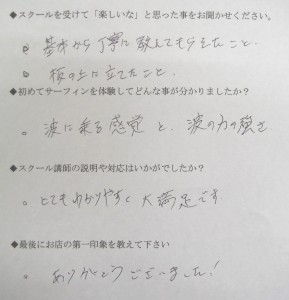 ◆スクールを受けて「楽しいな」と思った事をお聞かせください。
。基本から丁寧に教えてもらえたこと。
。板の上に立てたこと。
◆初めてサーフィンを体験してどんな事が分かりましたか?
。波に乗る感覚と、波の力の強さ
◆スクール講師の説明や対応はいかがでしたか?
。とてもわかりやすく大満足です
◆最後にお店の第一印象を教えて下さい
。ありがとうございました!